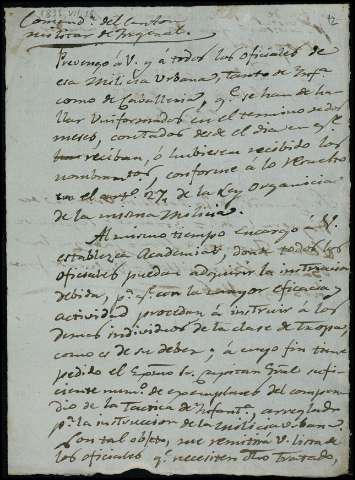 1835.VII.16
12
Comand.ª del Canton
militar de Fregenal.
Prevengo á V. y á todos los oficiales de
esa Milicia Urbana, tanto de Ynfª
como de Caballeria, q.e se han de ha-
llar Uniformados en el termino de dos
meses, contados desde el dia en q.e
reciban, ó hubiesen recibido los
nombram.tos, conforme á lo
en el art.º 27, de la Ley organica
de la misma Milicia.
Al mismo tiempo encargo á V.
establezca Academias, donde todos los
oficiales puedan adquirir la instruccion
debida, p.ª q.e con la mayor eficacia y
actividad procedan á instruir á los
demas individuos de la clase de tropa,
como es de su deber, y á cuyo fin tengo
pedido al Exmo. Sr. Capitan Gral sufi-
ciente num.º de exemplares del compen-
dio de la Tactica de Ynfant.ª, arreglado
p.ª la instruccion de la Milicia Urbana.
Con tal objeto, me remitirá V. lista de
los oficiales q.e necesiten dho tratado,